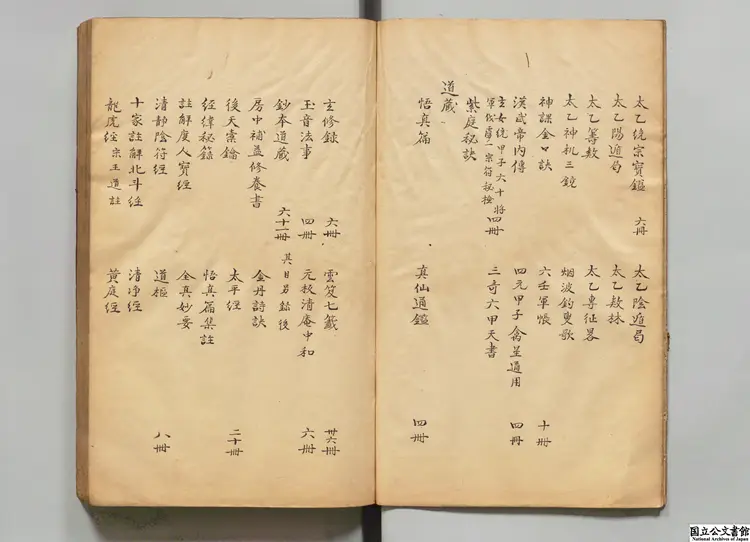 太乙統宗寶鑑 六冊 太乙陰遁局
太乙陽遁局 太乙敖林
太乙筭敖 太乙專征畧
太乙神机三鏡 烟波釣叟歌
神課金口訣 六壬軍帳 十冊
漢武帝內傳 四元甲子禽星通用 四冊
玄女統甲子六十將
軍伐壇一宗符秘檢 四冊 三奇六甲天書
紫庭秘訣
道藏
悟真篇 真仙通鑑 四冊
玄修錄 六冊 雲笈七籤 卅六冊
玉音法事 四冊 元權清庵中和 六冊
鈔本道藏 六十一冊 其目另錄後
房中補益修養書 金丹詩訣
後天索鑰 太平經 二十冊
經緯秘錄 悟真篇集註
註解度人寶經 全真妙要
清靜陰符經 道樞 八冊
十家註解北斗經 清净經
龍虎經 宗王道註 黃庭經
国立公文書館
National Archives of Japan